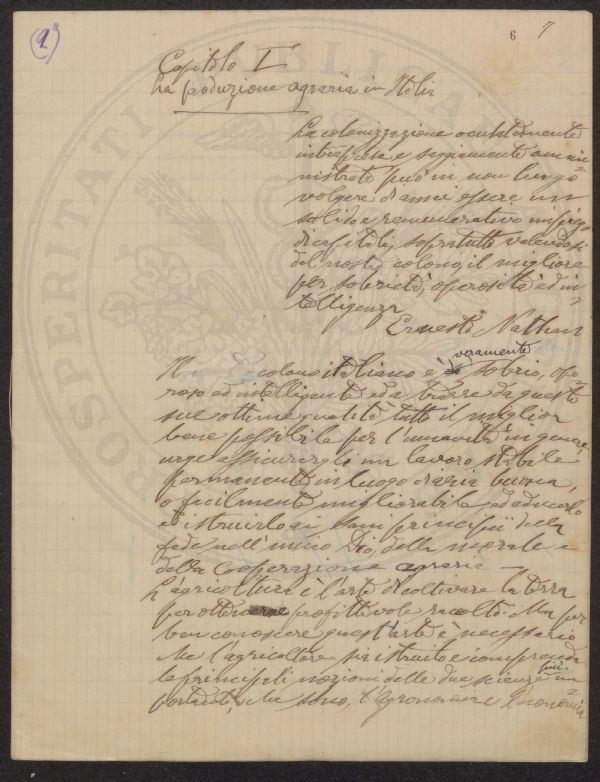 1)
6 7
Capitolo I
La produzione agraria in Italia
La colonizzazione oculatamente
intrapresa e saggiamente ammi-
nistrata può in non lungo
volgere d'anni essere un
solido e remunerativo impiego
di capitali, sopratutto valendosi
del nostro colono, il migliore
per sobrietà, operosità ed in=
telligenza
Ernesto Nathan
veramente
Il colono italiano è sobrio, ope
roso ed intelligente ed a trarre da queste
sue ottime qualità tutto il miglior
bene possibile per l'umanità in genere,
urge assicurargli un lavoro stabile
permanente in luogo d'aria buona,
o facilmente migliorabile ed educarlo
ed istruirlo ai sani principii della
fede nell'unico Dio, della morale e
della Cooperazione agraria —
L'agricoltura è l'arte di coltivare la terra
per ottenerne profittevole raccolto. Ma per
ben conoscere quest'arte è necessario
che l'agricoltore sia istruito e comprenda
le principali nozioni delle due scienze più im=
portanti, che sono, l'Agronomia e l'Economia
PROSPERITATI PUBLICAE